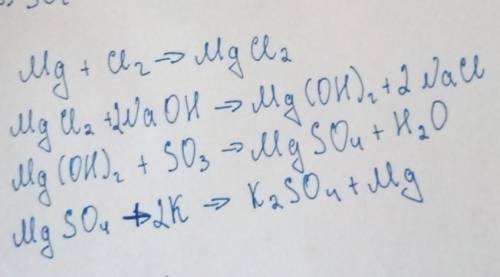 Mg + Cl₂ → MgCl₂
MgCl₂ + 2NaOH → Mg(OH)₂ + 2NaCl
Mg(OH)₂ + SO₃ → MgSO₄ + H₂O
MgSO₄ + 2K → K₂SO₄ + Mg